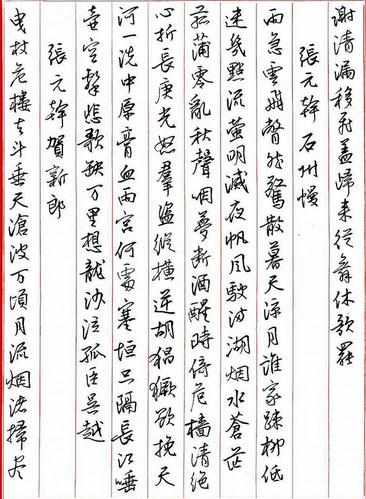 谢清漏移飞盖归来从舞休歌罢
張元幹石州慢
雨急雲飛瞥然驚散暮天涼月誰家疎柳低
迷幾點流萤明滅夜帆風駛满湖烟水蒼茫
菰蒲零亂秋聲咽夢断酒醒時倚危樯清絕
心折長庚光怒羣盗縱横逆胡猖獗欲挽天
河一洗中原膏血两宫何處塞垣只隔長江唾
壺空擊悲歌缺万里想龍沙泣孤臣吴越
張元幹賀新郎
曳杖危樓去斗垂天滄波万頃月流烟渚掃尽